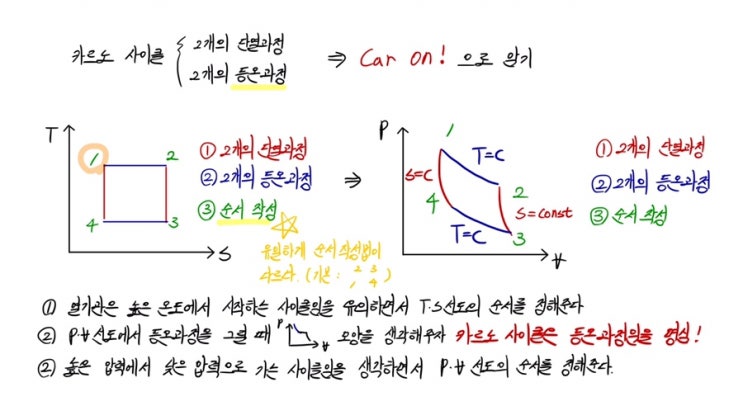 카르노 사이클 { 2개의 단열과정
2개의 등온과정
⇒ Car on! 으로 암기
T
1
2
4
3
S
① 2개의 단열과정
② 2개의 등온과정
③ 순서 작성
☆ 유일하게 순서작성법이
다르다. (기본 : 2 3
1 4 )
⇒
P
1
T=C
S=C
2
4
S=const
T=C
3
V
① 2개의 단열과정
② 2개의 등온과정
③ 순서 작성
① 열기관은 높은 온도에서 시작하는 사이클임을 유의하면서 T.S선도의 순서를 정해준다
② P.V선도에서 등온과정을 그릴 때 P V 모양을 생각해주자 카르노 사이클은 등온과정임을 명심!
② 높은 압력에서 낮은 압력으로 가는 사이클임을 생각하면서 P.V 선도의 순서를 정해준다.